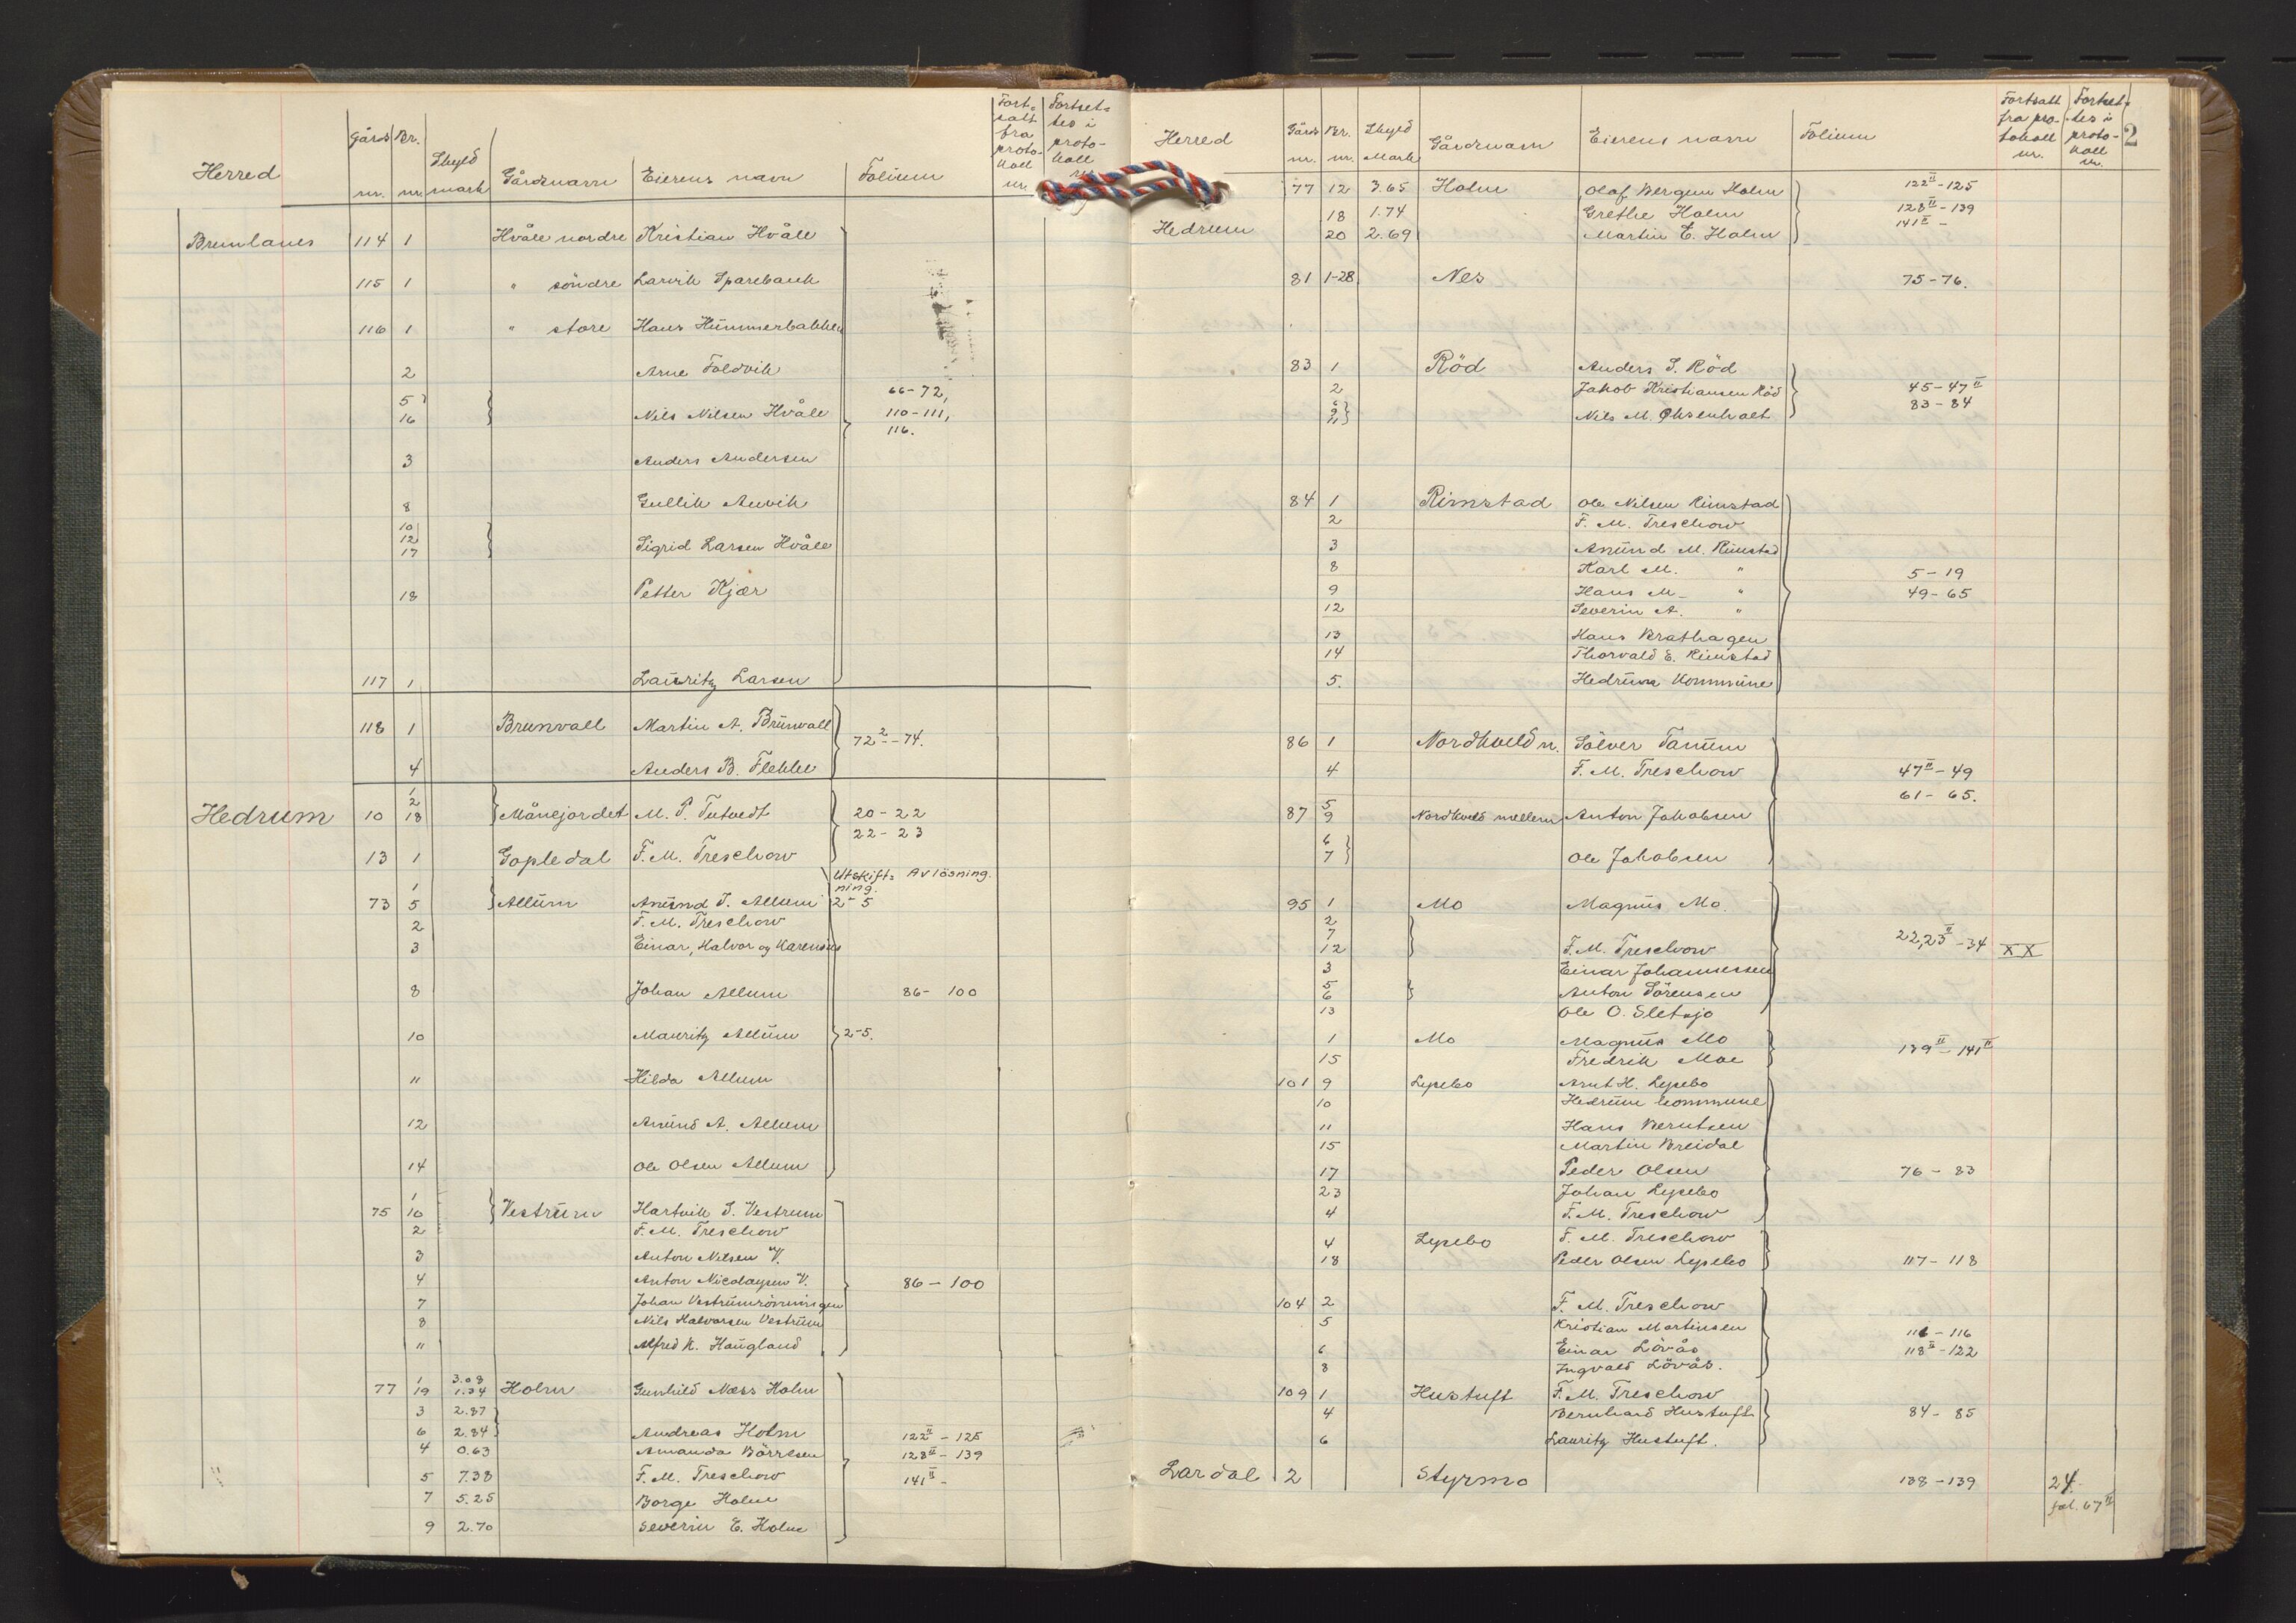 Herred Gårds nr. Br. nr. Skyld mark Gårdsnavn Eierens navn Folium Fortsatt fra protokoll nr. Fortsettes i protokoll nr.
Brunlanes 114 1 Hvåle nordre Kristian Hvåle
115 1 " söndre Larvik Sparebank
116 1 " store Hans Hummerbakken
2 Arne Foldvik
5
16 Nils Nilsen Hvåle 66-72, 110-111, 116.
3 Anders Andersen
8 Gullik Auvik
10
12
17 Sigrid Larsen Hvåle
18 Petter Kjær
117 1 Lauritz Larsen
118 1 Brunvall Martin A. Brunvall 72² - 74.
4 Anders B. Flekke
1
2
Hedrum 10 18 Månejordet M. P. Tutvedt 20-22
22-23
13 1 Gopledal F. M. Treschow
Utskiftning. Avlösning.
1
73 5 Allum Anund I. Allum 2-5
2 F. M. Treschow
3 Einar, Halvor og Karensius
8 Johan Allum 86-100
10 Mauritz Allum 2-5.
11 Hilda Allum
12 Anund A. Allum
14 Ole Olsen Allum
1
75 10 Vestrum Hartvik S. Vestrum
2 F. M. Treschow
3 Anton Nilsen V.
4 Anton Nicolaysen V. 86-100
7 Johan Vestrumrönningen
8 Nils Halvorsen Vestrum
11 Alfred K. Haugland
1 3.08
77 19 1.34 Holm Gunhild Næss Holm
3 2.87
6 2.84 Andreas Holm 122II - 125
4 0.63 Amanda Börresen 128II - 139
5 7.38 F. M. Treschow 141II -
7 5.25 Borge Holm
9 2.70 Severin E. Holm
2
Herred Gårds nr. Br. nr. Skyld Mark Gårdsnavn Eierens navn Folium Fortsatt fra protokoll nr. Fortsettes i protokoll nr.
77 12 3.65 Holm Olaf Bergum Holm 122II - 125
18 1.74 Grethe Holm 128II - 139
Hedrum 20 2.69 Martin E. Holm 141II -
81 1-28 Nes 75-76.
83 1 Röd Anders S. Röd
2 Jakob Kristiansen Röd 45-47II
6
9
11 Nils M. Oksenholt 83-84
84 1 Rimstad Ole Nilsen Rimstad
2 F. M. Treschow
3 Anund M. Rimstad
8 Karl M. " 5-19
9 Hans M. " 49-65
12 Severin A. "
13 Hans Brathagen
14 Thorvald E. Rimstad
5. Hedrum Kommune
86 1 Nordkveld n. Sölver Tanum
4 F. M. Treschow 47II - 49
61-65.
5
87 9 Nordkveld mellem Anton Jakobsen
6
7 Ole Jakobsen
95 1 Mo Magnus Mo.
2
7
12 F. M. Treschow 22,23II - 34 XX
3 Einar Johannessen
5
6 Anton Sörensen
13 Ole O. Sletsjø
1 Mo Magnus Mo
15 Fredrik Moe 139II - 141II
101 9 Lysebo Arnt H. Lysebo
10 Hedrum kommune
11 Hans Berntsen
15 Martin Breidal
17 Peder Olsen 76-83
23 Johan Lysebo
4 F. M. Treschow
4 Lysebo F. M. Treschow
18 Peder Olsen Lysebo 117-118
104 2 F. M. Treschow
5 Kristian Martinsen 116
6 Einar Lövås 118II - 122
8 Ingvald Lövås.
109 1 Hustuft F. M. Treschow
4 Bernhard Hustuft 84-85
6 Lauritz Hustuft.
Lardal 2 Styrmo 138-139 24.
fol. 67II